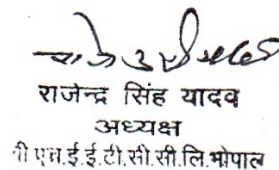 राजेन्द्र सिंह यादव
अध्यक्ष
एच.ई.ई.टी.सी.सी.लि.भोपाल